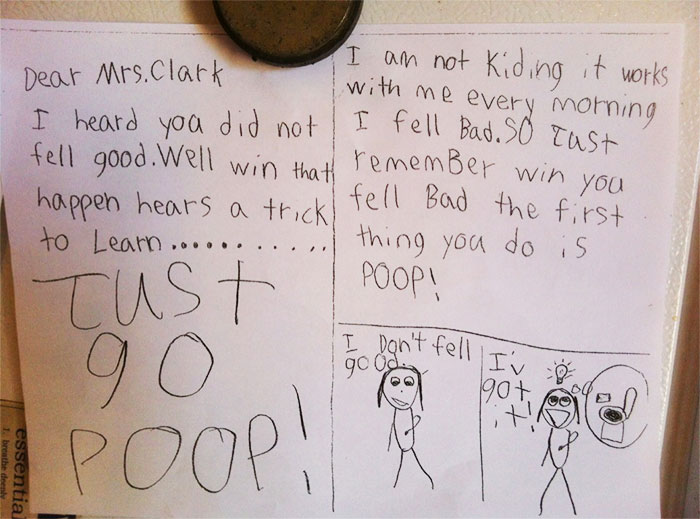 Dear Mrs.Clark
I heard you did not
fell good.Well win that
happen hears a trick
to Learn............
Just
go
POOP!
I am not kiding it works
with me every morning
I fell Bad.SO Just
rememBer win you
fell Bad the first
thing you do is
POOP!
I Don't fell
good.
I'v
got
it!
essential
1. breathe deeply